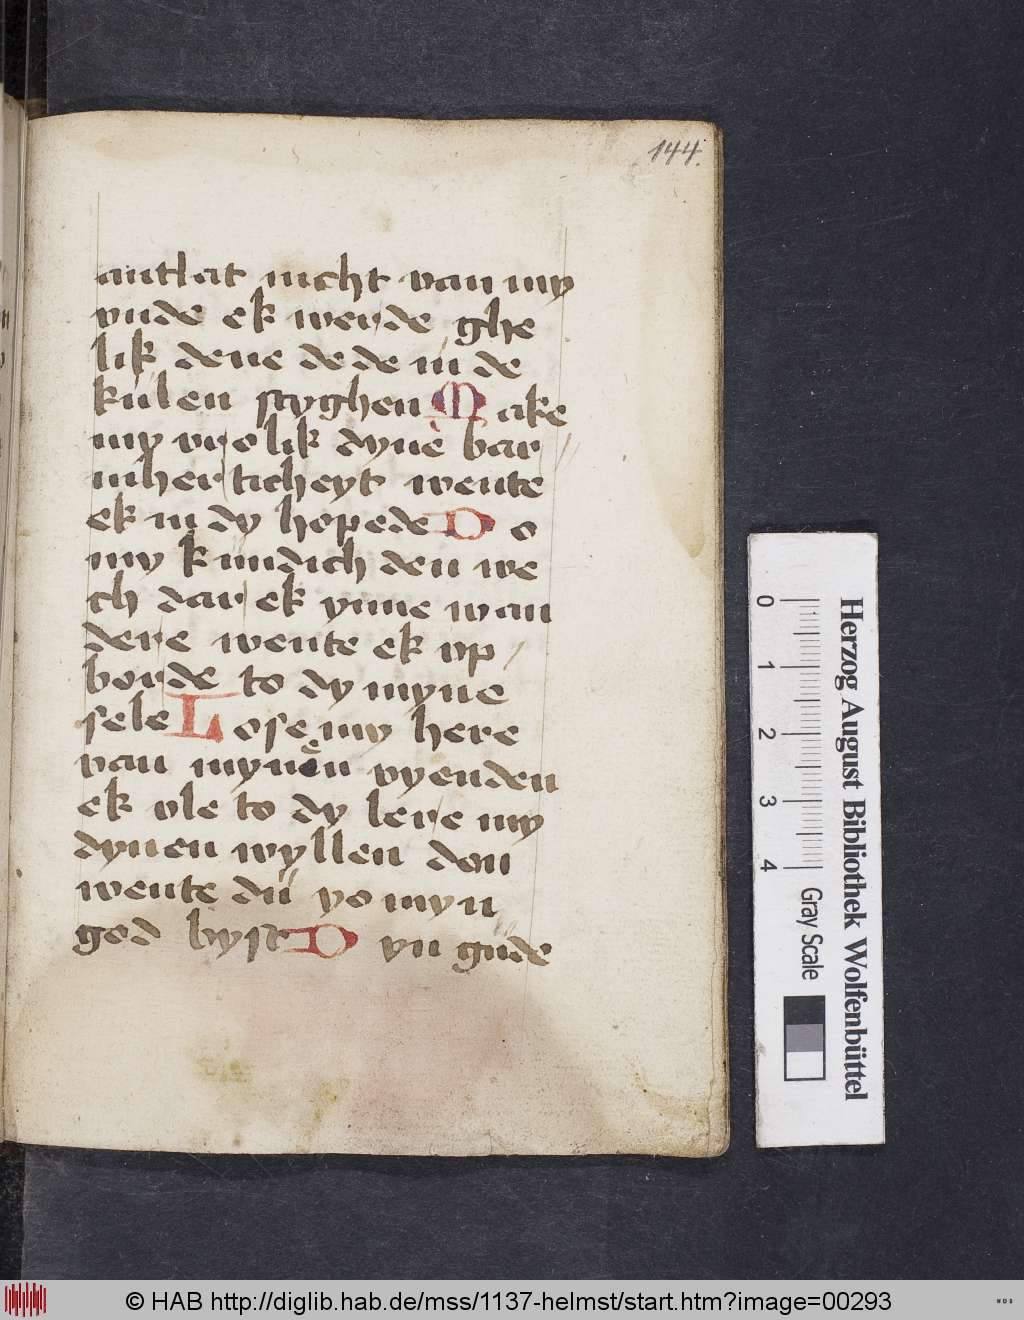 144.
antlat nicht van my
vnde ek werde ghe
lik dene de de in de
kulen styghen Make
my vrolik dyne bar
mherticheyt wente
ek in dy hopede Do
my kundich den we
ch dar ek ynne wan
dere wente ek vp
borde to dy myne
sele Lose my here
van mynen vyenden
ek vle to dy lere my
dynen wyllen don
wente du yo myn
god byst Dyn gude
0 1 2 3 4
Gray Scale
Herzog August Bibliothek Wolfenbüttel
© HAB http://diglib.hab.de/mss/1137-helmst/start.htm?image=00293